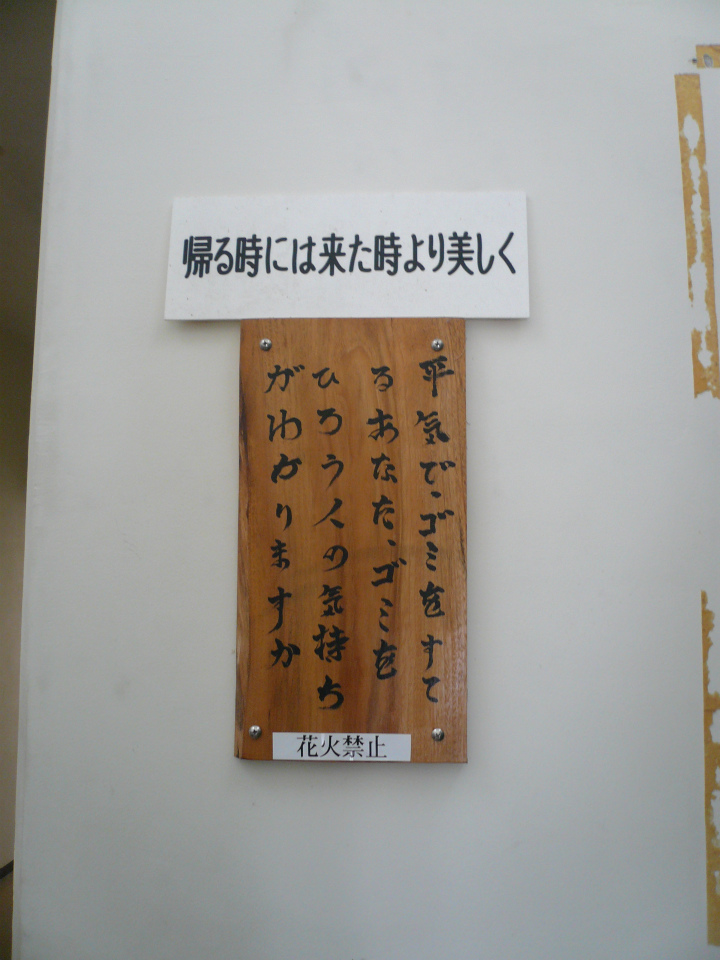 帰る時には来た時より美しく
平気で、ゴミをすて
るあなた、ゴミを
ひろう人の気持ち
がわかりますか
花火禁止